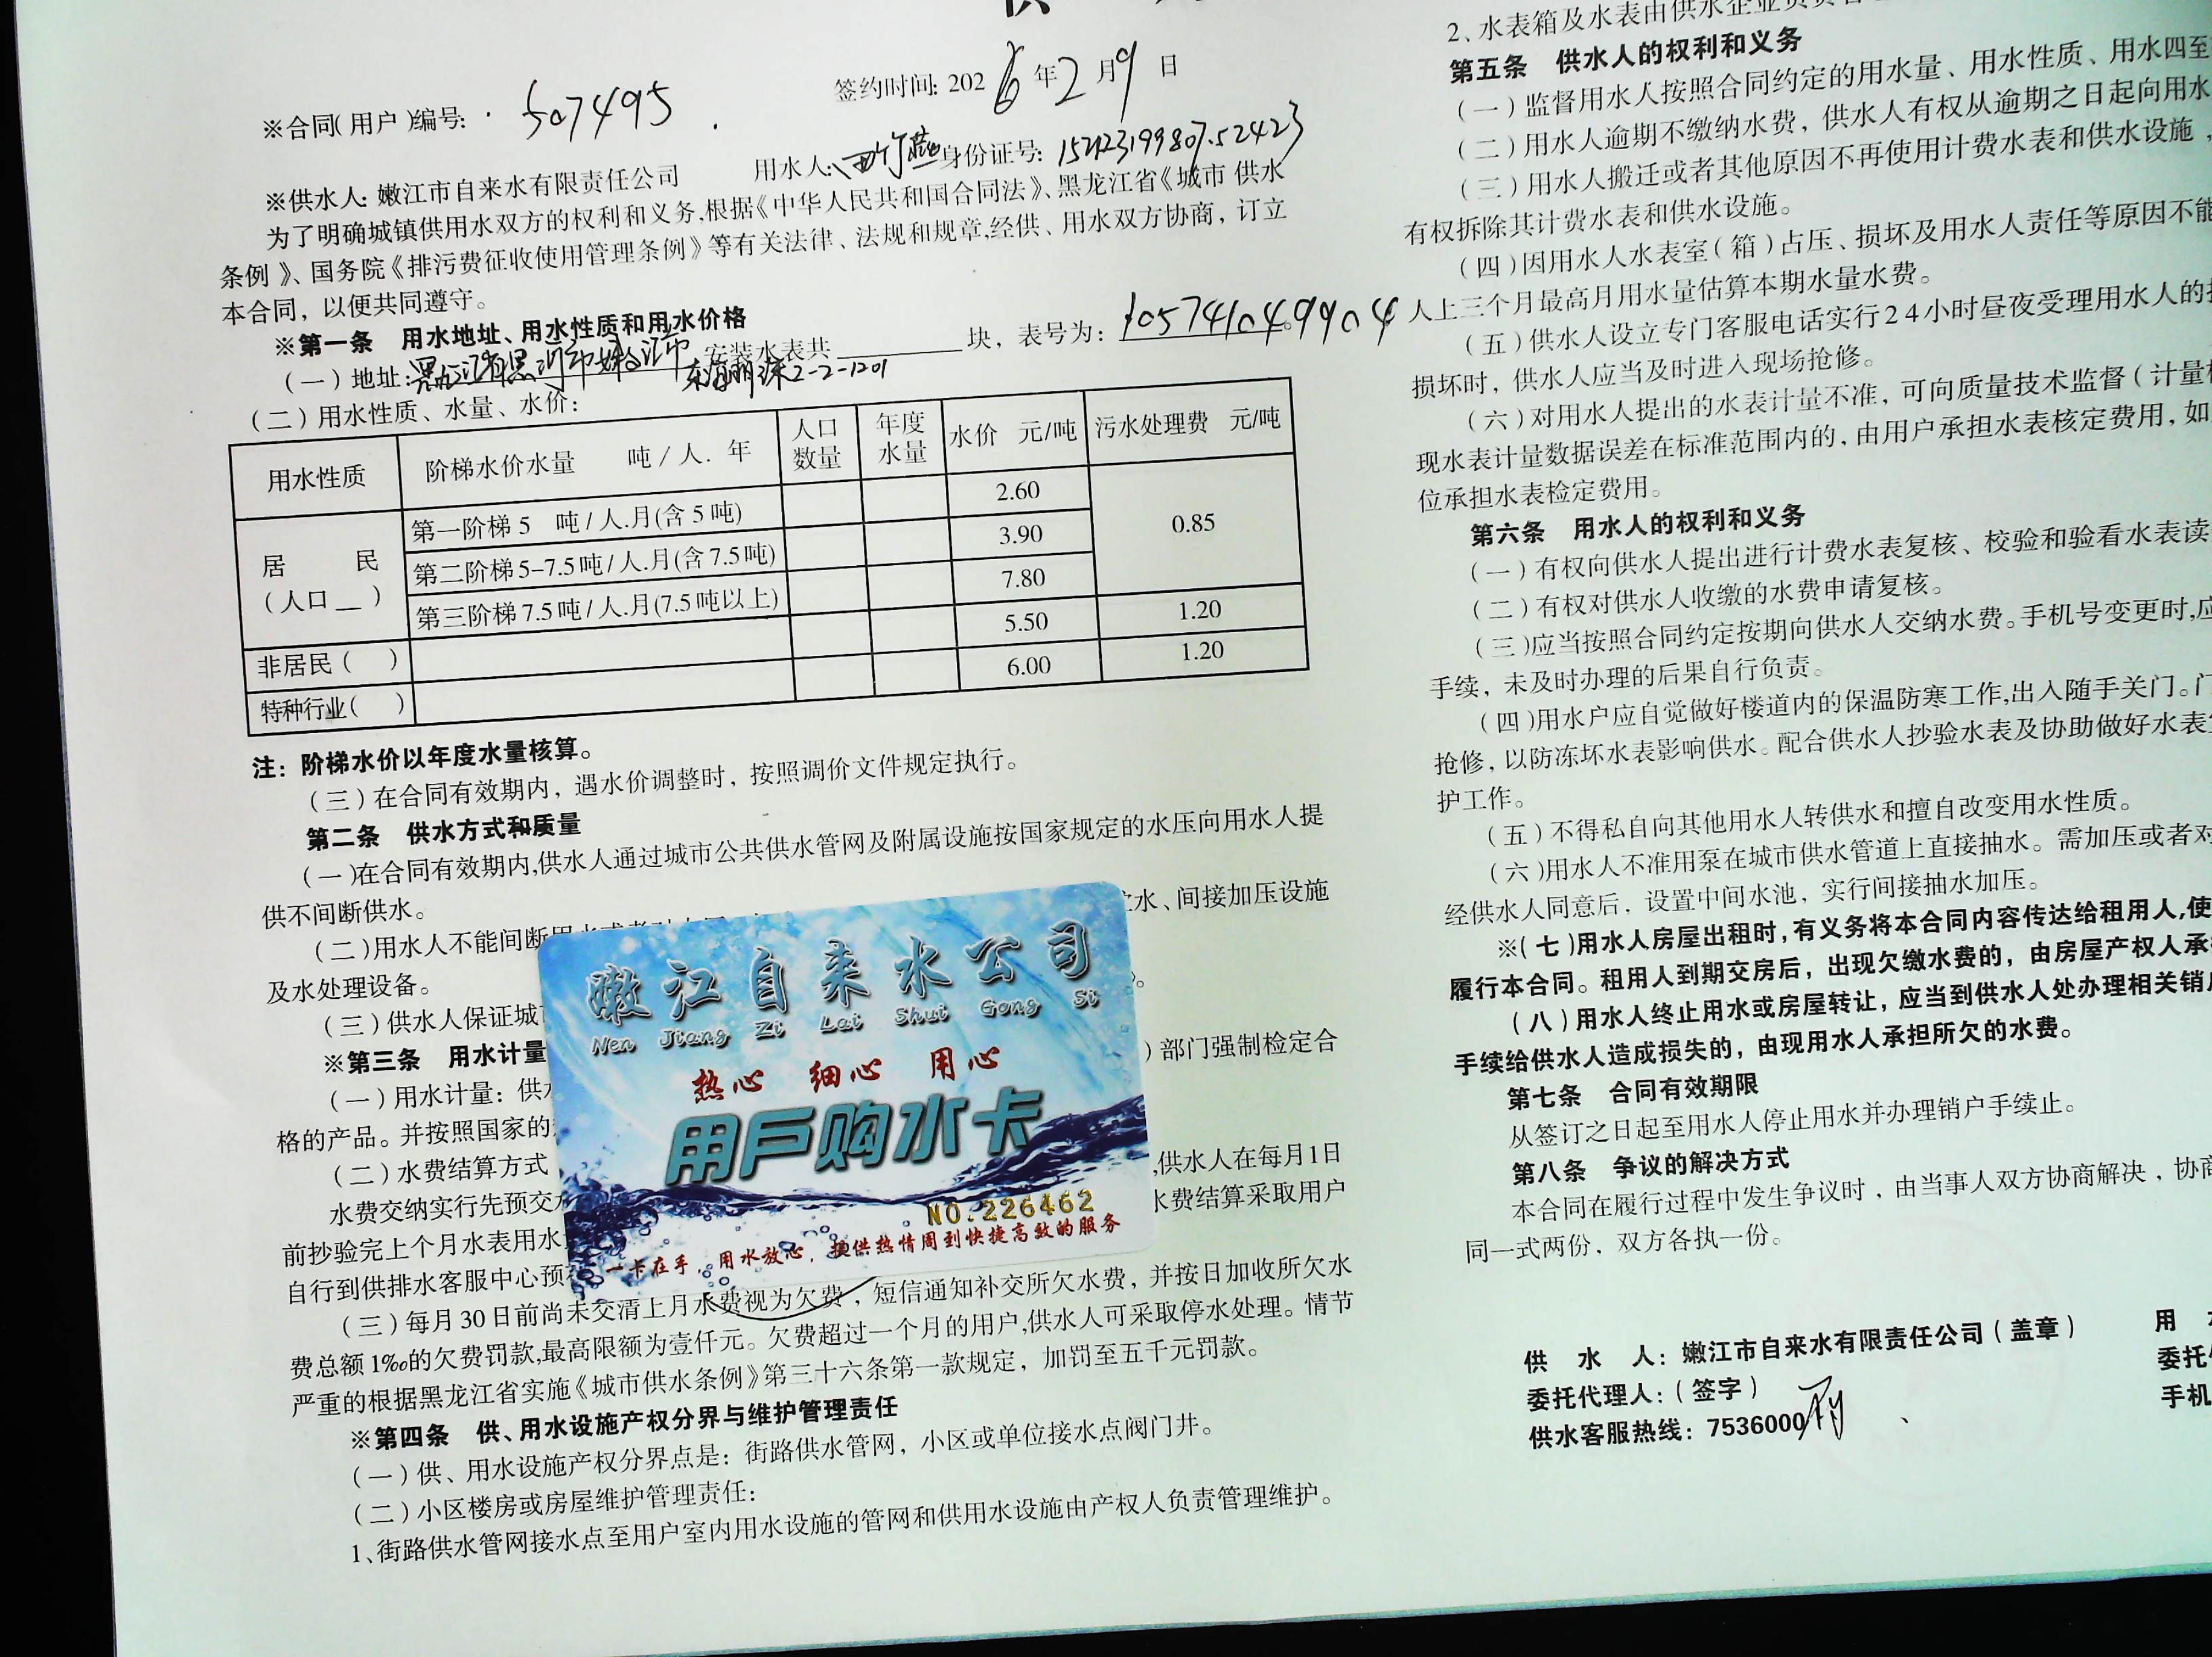 签约时间: 2026年2月9日
※合同(用户)编号: 507495
※供水人: 嫩江市自来水有限责任公司 用水人: 身份证号:
为了明确城镇供用水双方的权利和义务,根据《中华人民共和国合同法》、黑龙江省《城市 供水
条例》、国务院《排污费征收使用管理条例》等有关法律、法规和规章,经供、用水双方协商，订立
本合同，以便共同遵守。
※第一条 用水地址、用水性质和用水价格
(一)地址: 黑龙江省黑河市嫩江市 2-2-1201 安装水表共 块，表号为: 105741049904
(二)用水性质、水量、水价:
用水性质 阶梯水价水量 吨/人.年 人口数量 年度水量 水价 元/吨 污水处理费 元/吨
居 民 (人口 )
第一阶梯 5 吨/人.月(含 5 吨) 2.60 0.85
第二阶梯 5-7.5 吨/人.月(含 7.5 吨) 3.90
第三阶梯 7.5 吨/人.月(7.5 吨以上) 7.80
非居民( ) 5.50 1.20
特种行业( ) 6.00 1.20
注：阶梯水价以年度水量核算。
(三)在合同有效期内，遇水价调整时，按照调价文件规定执行。
第二条 供水方式和质量
(一)在合同有效期内,供水人通过城市公共供水管网及附属设施按国家规定的水压向用水人提
供不间断供水。
(二)用水人不能间断用水 水、间接加压设施
及水处理设备。
(三)供水人保证城
※第三条 用水计量
(一)用水计量：供 )部门强制检定合
格的产品。并按照国家的
(二)水费结算方式
水费交纳实行先预交 ,供水人在每月1日
前抄验完上个月水表用水 水费结算采取用户
自行到供排水客服中心预
(三)每月 30 日前尚未交清上月水费视为欠费，短信通知补交所欠水费，并按日加收所欠水
费总额 1‰的欠费罚款,最高限额为壹仟元。欠费超过一个月的用户,供水人可采取停水处理。情节
严重的根据黑龙江省实施《城市供水条例》第三十六条第一款规定，加罚至五千元罚款。
※第四条 供、用水设施产权分界与维护管理责任
(一)供、用水设施产权分界点是：街路供水管网，小区或单位接水点阀门井。
(二)小区楼房或房屋维护管理责任：
1、街路供水管网接水点至用户室内用水设施的管网和供用水设施由产权人负责管理维护。
嫩江自来水公司
Nen Jiang Zi Lai Shui Gong Si
热心 细心 用心
用户购水卡
NO.226462
一卡在手，用水放心，提供热情周到快捷高效的服务
2、水表箱及水表由供水企业负责
第五条 供水人的权利和义务
(一)监督用水人按照合同约定的用水量、用水性质、用水四至
(二)用水人逾期不缴纳水费，供水人有权从逾期之日起向用水
(三)用水人搬迁或者其他原因不再使用计费水表和供水设施，
有权拆除其计费水表和供水设施。
(四)因用水人水表室(箱)占压、损坏及用水人责任等原因不能
人上三个月最高月用水量估算本期水量水费。
(五)供水人设立专门客服电话实行24小时昼夜受理用水人的
损坏时，供水人应当及时进入现场抢修。
(六)对用水人提出的水表计量不准，可向质量技术监督(计量
现水表计量数据误差在标准范围内的，由用户承担水表核定费用，如
位承担水表检定费用。
第六条 用水人的权利和义务
(一)有权向供水人提出进行计费水表复核、校验和验看水表读
(二)有权对供水人收缴的水费申请复核。
(三)应当按照合同约定按期向供水人交纳水费。手机号变更时,应
手续，未及时办理的后果自行负责。
(四)用水户应自觉做好楼道内的保温防寒工作,出入随手关门。门
抢修，以防冻坏水表影响供水。配合供水人抄验水表及协助做好水表
护工作。
(五)不得私自向其他用水人转供水和擅自改变用水性质。
(六)用水人不准用泵在城市供水管道上直接抽水。需加压或者对
经供水人同意后，设置中间水池，实行间接抽水加压。
※(七)用水人房屋出租时,有义务将本合同内容传达给租用人,使
履行本合同。租用人到期交房后，出现欠缴水费的，由房屋产权人承
(八)用水人终止用水或房屋转让，应当到供水人处办理相关销户
手续给供水人造成损失的，由现用水人承担所欠的水费。
第七条 合同有效期限
从签订之日起至用水人停止用水并办理销户手续止。
第八条 争议的解决方式
本合同在履行过程中发生争议时，由当事人双方协商解决，协商
同一式两份，双方各执一份。
供 水 人：嫩江市自来水有限责任公司(盖章) 用
委托代理人：(签字) 委托
供水客服热线：7536000 手机